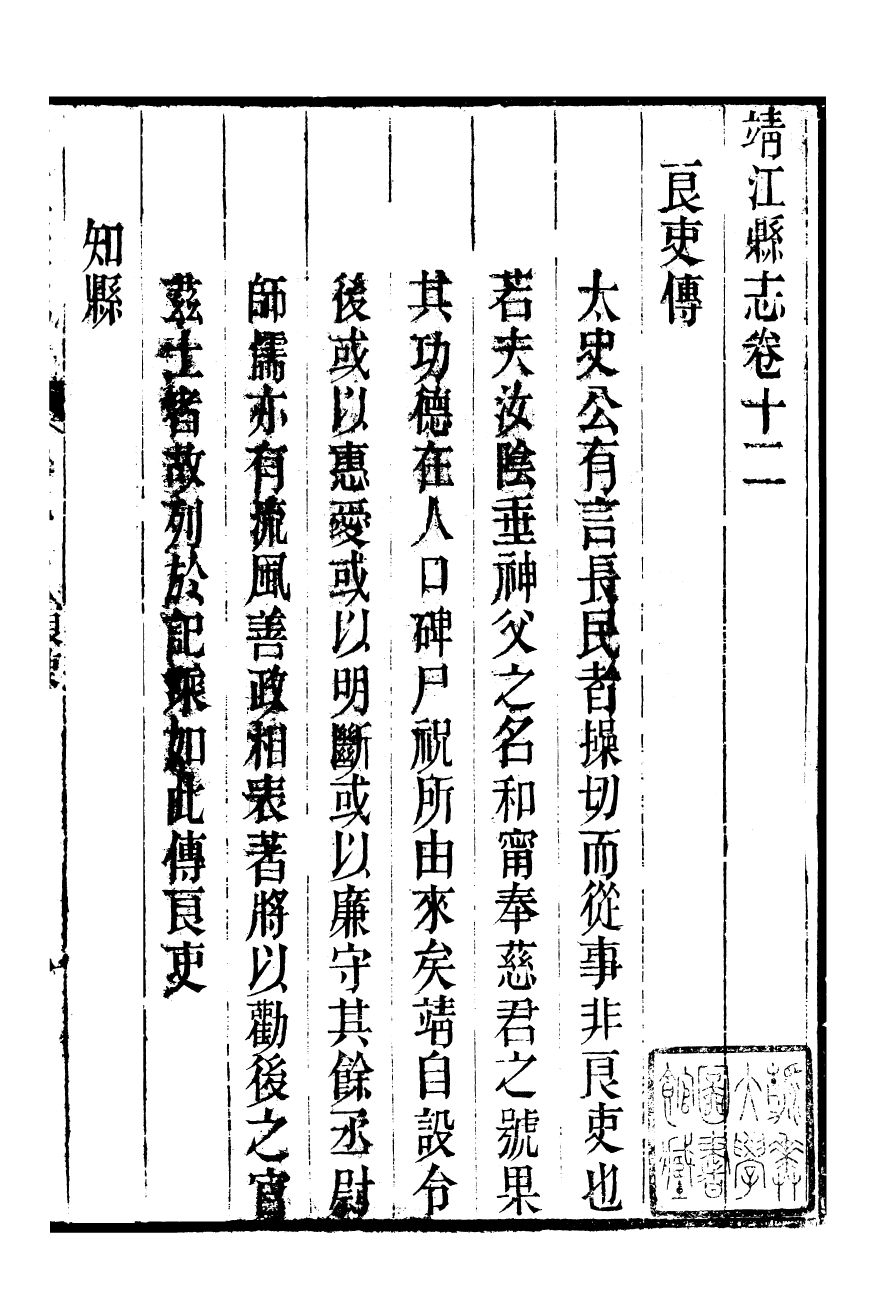 靖江縣志卷十二
良吏傳
太史公有言長民者操切而從事非良吏也
若夫汝陰垂神父之名和甯奉慈君之號果
其功德在人口碑尸祝所由來矣靖自設令
後或以惠愛或以明斷或以廉守其餘丞尉
師儒亦有流風善政相表著將以勸後之官
茲土者故列於記乘如此傳良吏
知縣
大學
圖書
館藏